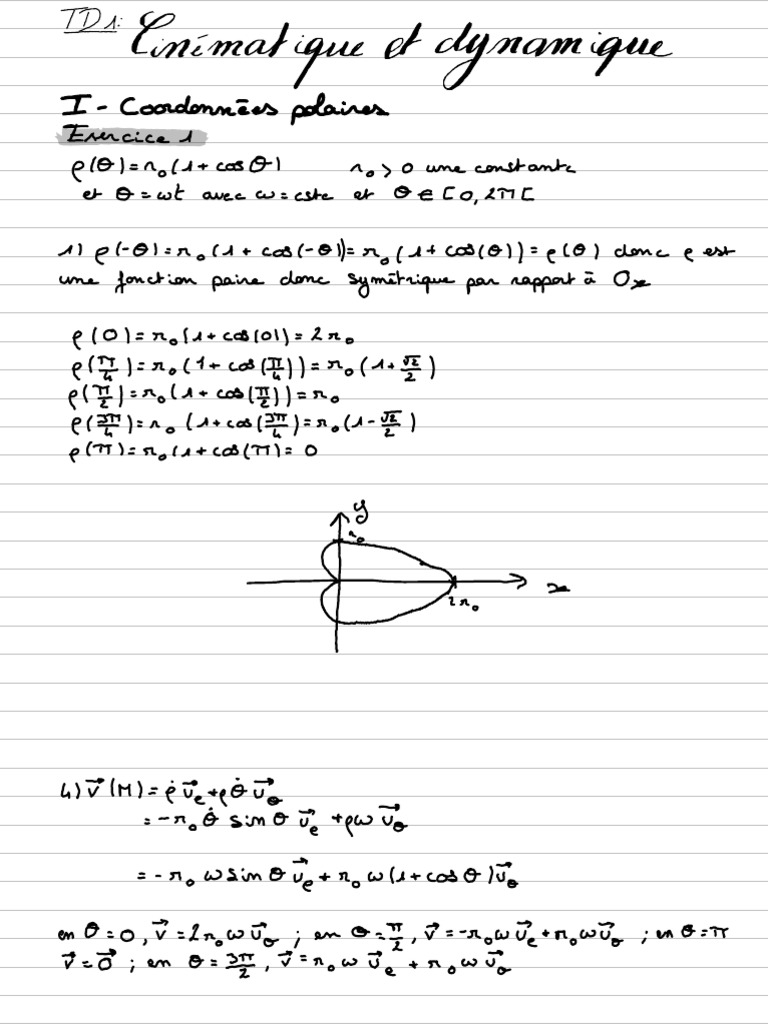 TD1:
Cinématique et dynamique
I - Coordonnées polaires
Exercice 1
ρ(θ) = r₀(1 + cos θ)    r₀ > 0 une constante
et θ = ωt avec ω = cste et θ ∈ [0, 2π[
1) ρ(-θ) = r₀(1 + cos(-θ)) = r₀(1 + cos(θ)) = ρ(θ) donc ρ est
une fonction paire donc symétrique par rapport à Ox
ρ(0) = r₀(1 + cos(0)) = 2r₀
ρ(π/4) = r₀(1 + cos(π/4)) = r₀(1 + √2/2)
ρ(π/2) = r₀(1 + cos(π/2)) = r₀
ρ(3π/4) = r₀(1 + cos(3π/4) = r₀(1 - √2/2)
ρ(π) = r₀(1 + cos(π) = 0
y
r₀
x
2r₀
4) v⃗(M) = ρ̇ u⃗ρ + ρ θ̇ u⃗θ
= -r₀ θ̇ sin θ u⃗ρ + ρω u⃗θ
= -r₀ ω sin θ u⃗ρ + r₀ ω(1 + cos θ) u⃗θ
en θ = 0, v⃗ = 2r₀ω u⃗θ ; en θ = π/2, v⃗ = -r₀ω u⃗ρ + r₀ω u⃗θ ; en θ = π
v⃗ = 0⃗ ; en θ = 3π/2, v⃗ = r₀ω u⃗ρ + r₀ω u⃗θ